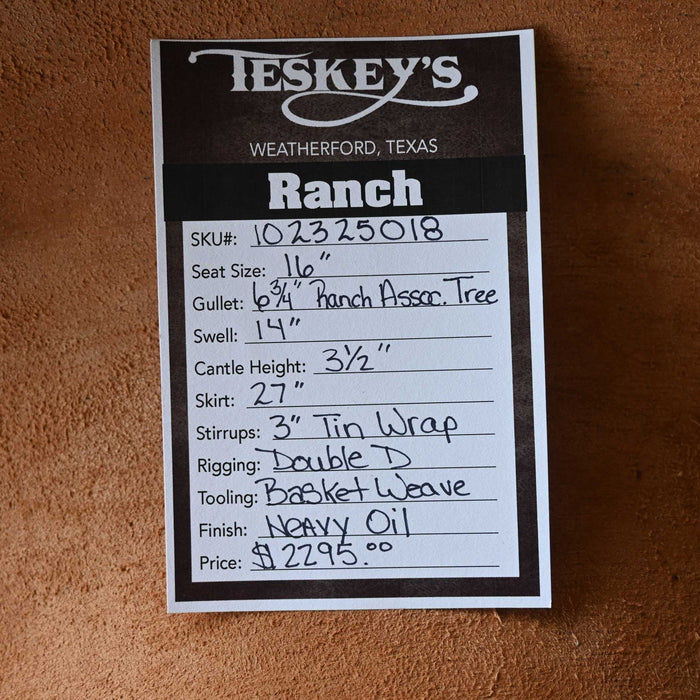 TESKEY'S
WEATHERFORD, TEXAS
Ranch
SKU#: 102325018
Seat Size: 16"
Gullet: 6 3/4" Ranch Assoc. Tree
Swell: 14"
Cantle Height: 3 1/2"
Skirt: 27"
Stirrups: 3" Tin Wrap
Rigging: Double D
Tooling: Basket Weave
Finish: Heavy Oil
Price: $2295.00